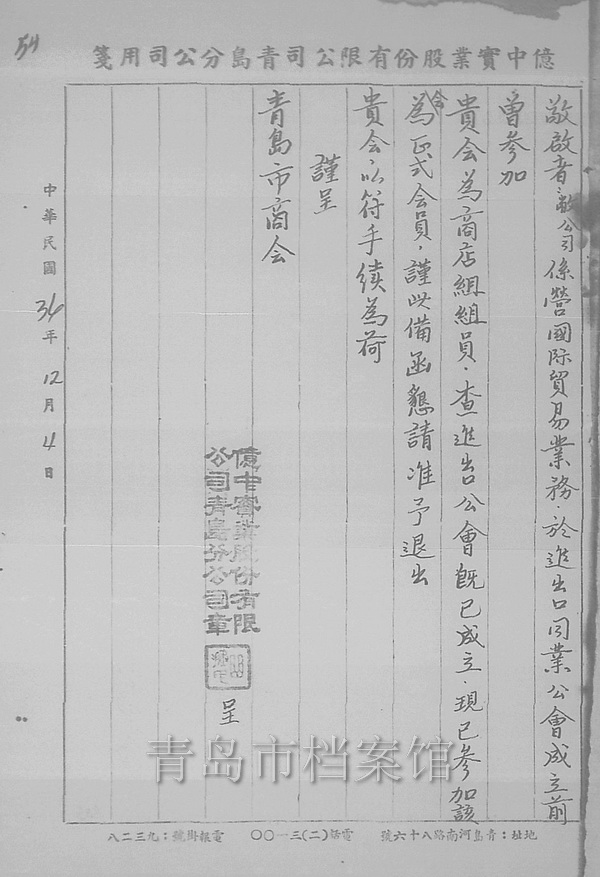 54
億中實業股份有限公司青島分公司用箋
敬啟者敝公司係營國際貿易業務．於進出口同業公會成立前
曾參加
貴会為商店組組員．查進出口公會既已成立．現已參加該
會為正式会員，謹此備函懇請准予退出
貴会以符手續為荷
謹呈
青島市商会
億中實業股份有限
公司青島分公司章
呈
中華民國36年12月4日
地址：青島河南路八十六號 電話(二)三一〇〇 電報掛號：九三二八
青岛市档案馆